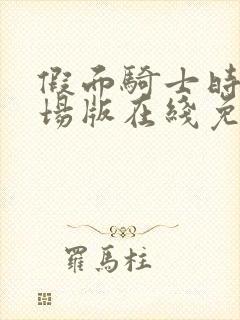 假面騎士時
場版在綫免
羅馬柱